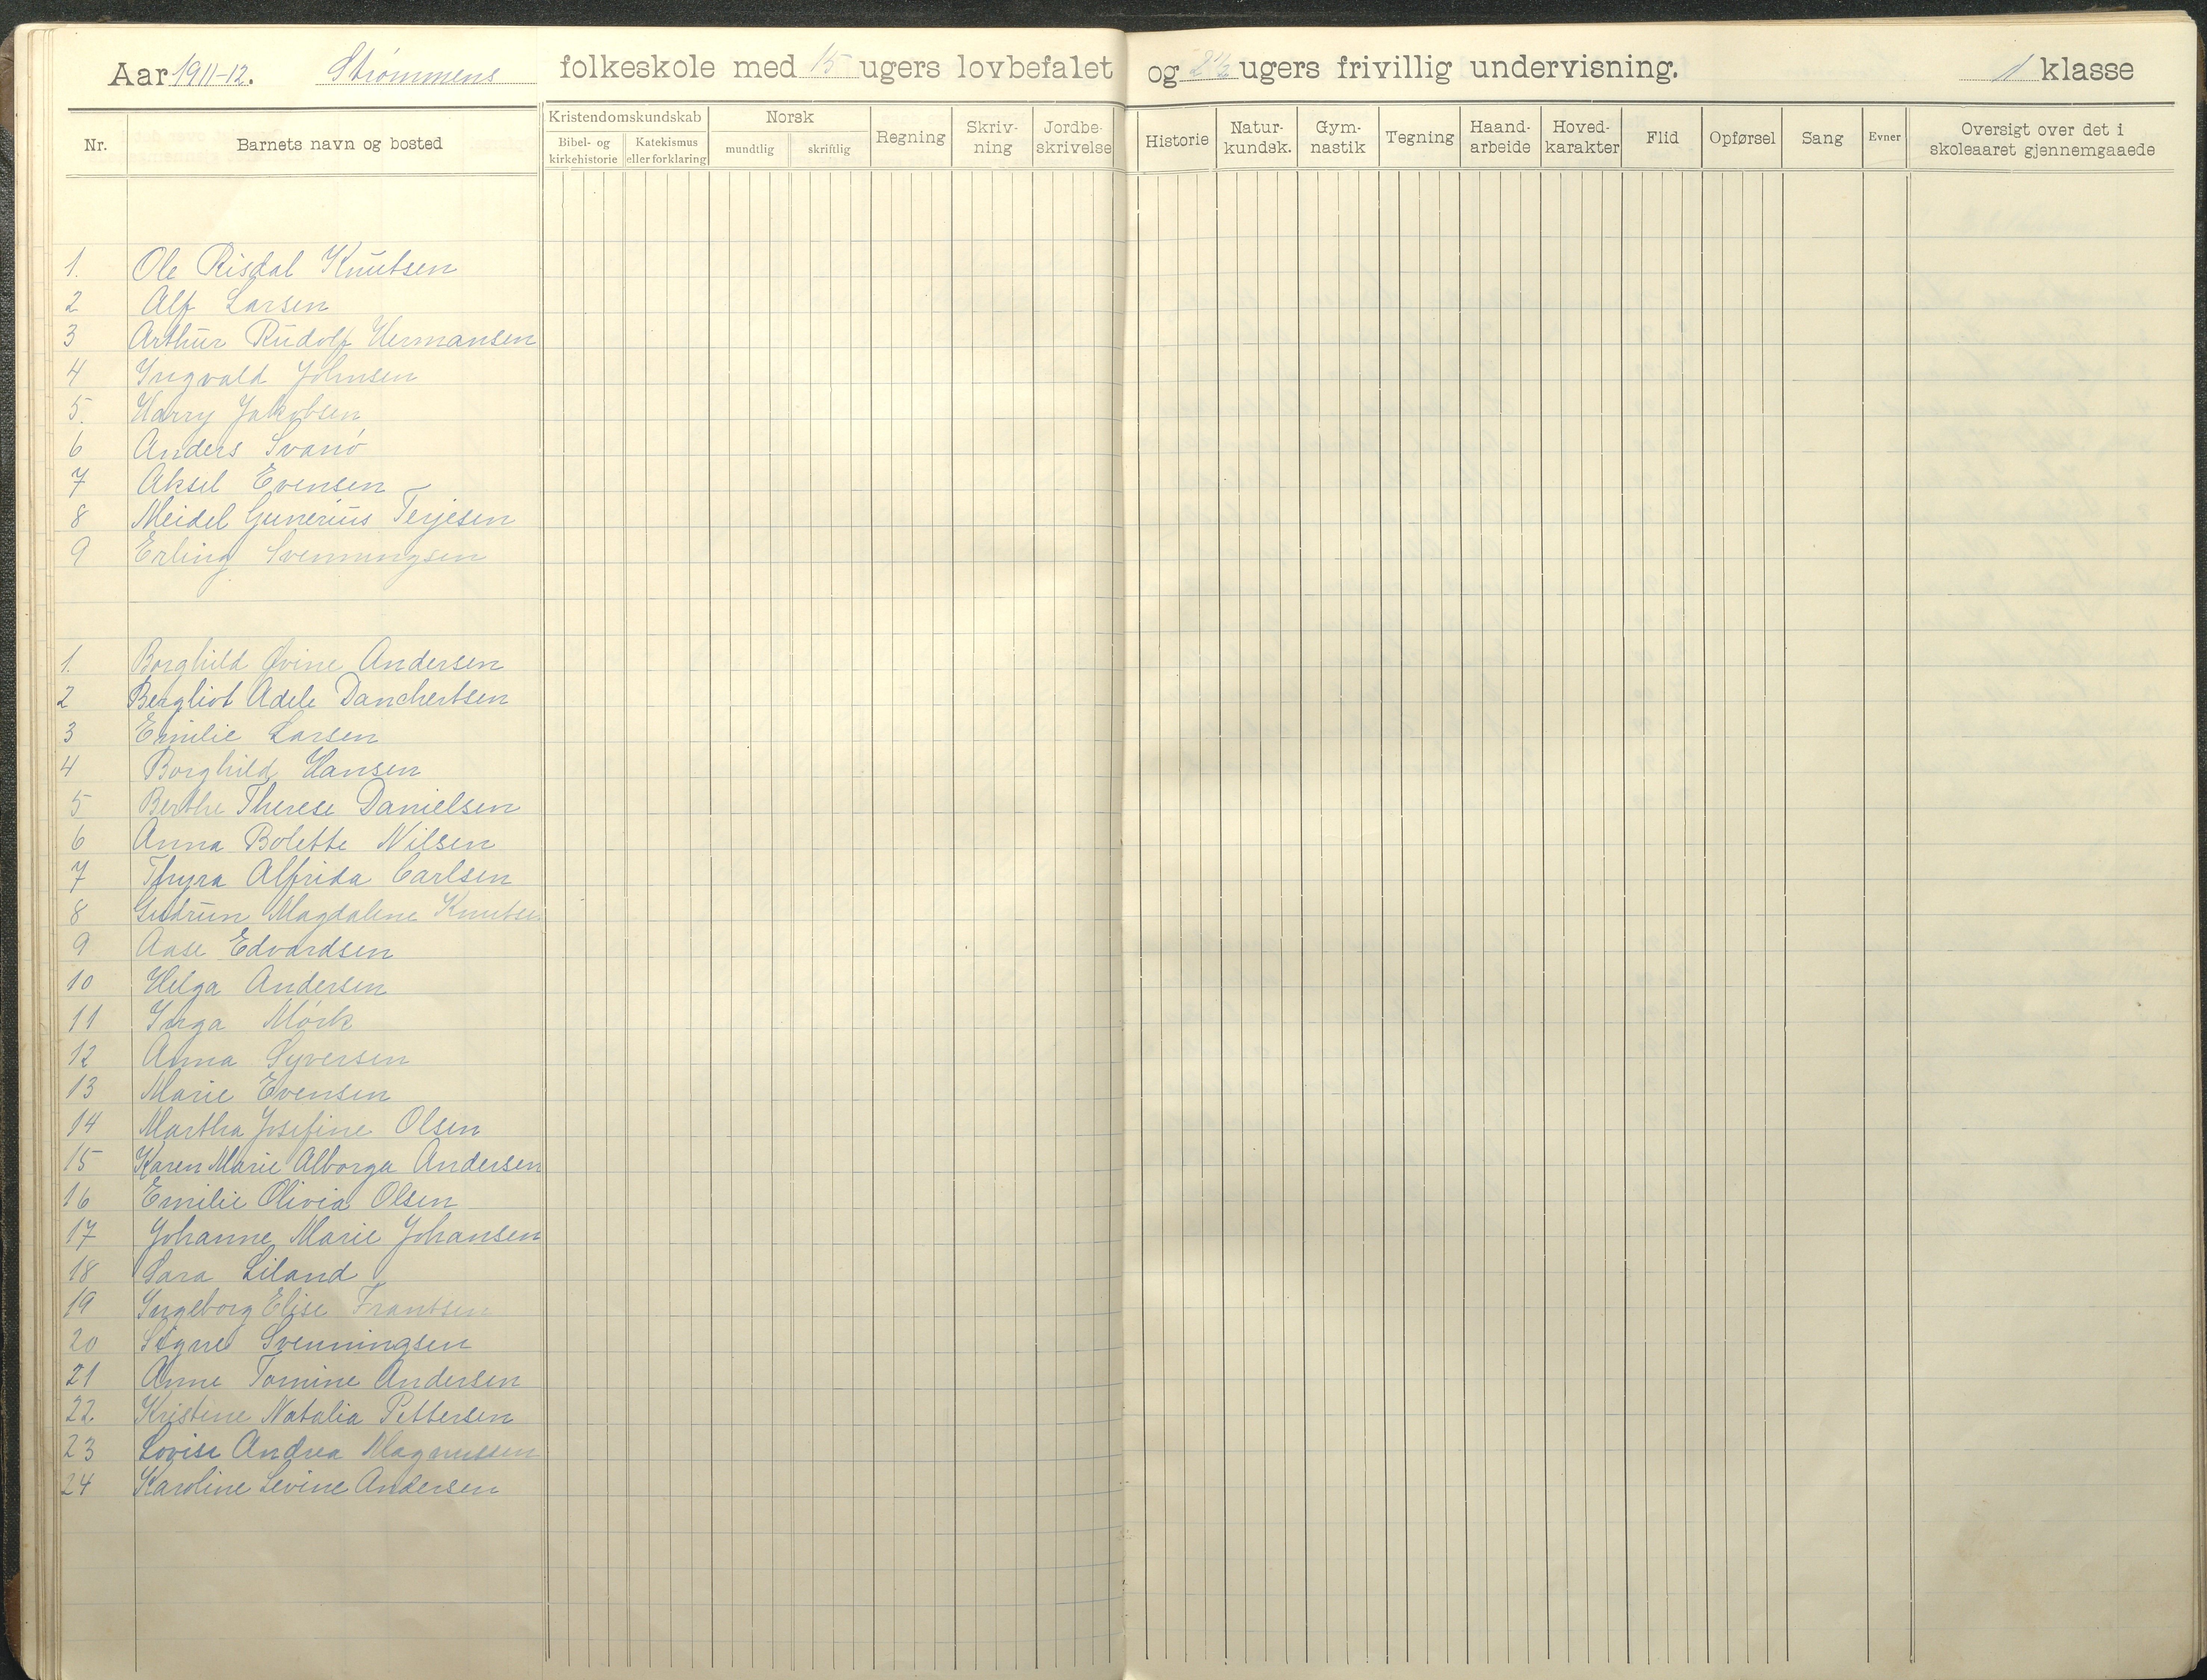 Aar 1911-12. Strømmens folkeskole med 15 ugers lovbefalet og 2 1/2 ugers frivillig undervisning. 1 klasse
Nr. Barnets navn og bosted Kristendomskundskab Bibel- og kirkehistorie Katekismus eller forklaring Norsk mundtlig skriftlig Regning Skriv-ning Jordbe-skrivelse Historie Natur-kundsk. Gym-nastik Tegning Haand-arbeide Hoved-karakter Flid Opførsel Sang Evner Oversigt over det i skoleaaret gjennemgaaede
1. Ole Risdal Knutsen
2 Alf Larsen
3 Arthur Rudolf Hermansen
4 Ingvald Johnsen
5. Harry Jakobsen
6 Anders Svanø
7 Aksel Evensen
8 Meidel Gunerius Terjesen
9 Erling Svenningsen
1. Borghild Øvine Andersen
2 Bergliot Adele Danchertsen
3 Emilie Larsen
4 Borghild Hansen
5 Berthe Therese Danielsen
6 Anna Bolette Nilsen
7 Thyra Alfrida Carlsen
8 Gudrun Magdalene Knutsen
9 Aase Edvardsen
10 Helga Andersen
11 Inga Mörk
12 Anna Syversen
13 Marie Evensen
14 Martha Josefine Olsen
15 Karen Marie Alborga Andersen
16 Emilie Olivia Olsen
17 Johanne Marie Johansen
18 Sara Liland
19 Ingeborg Elise Frantsen
20 Signe Svenningsen
21 Anne Tomine Andersen
22. Kristine Natalia Pettersen
23 Lovise Andrea Magnussen
24 Karoline Levine Andersen